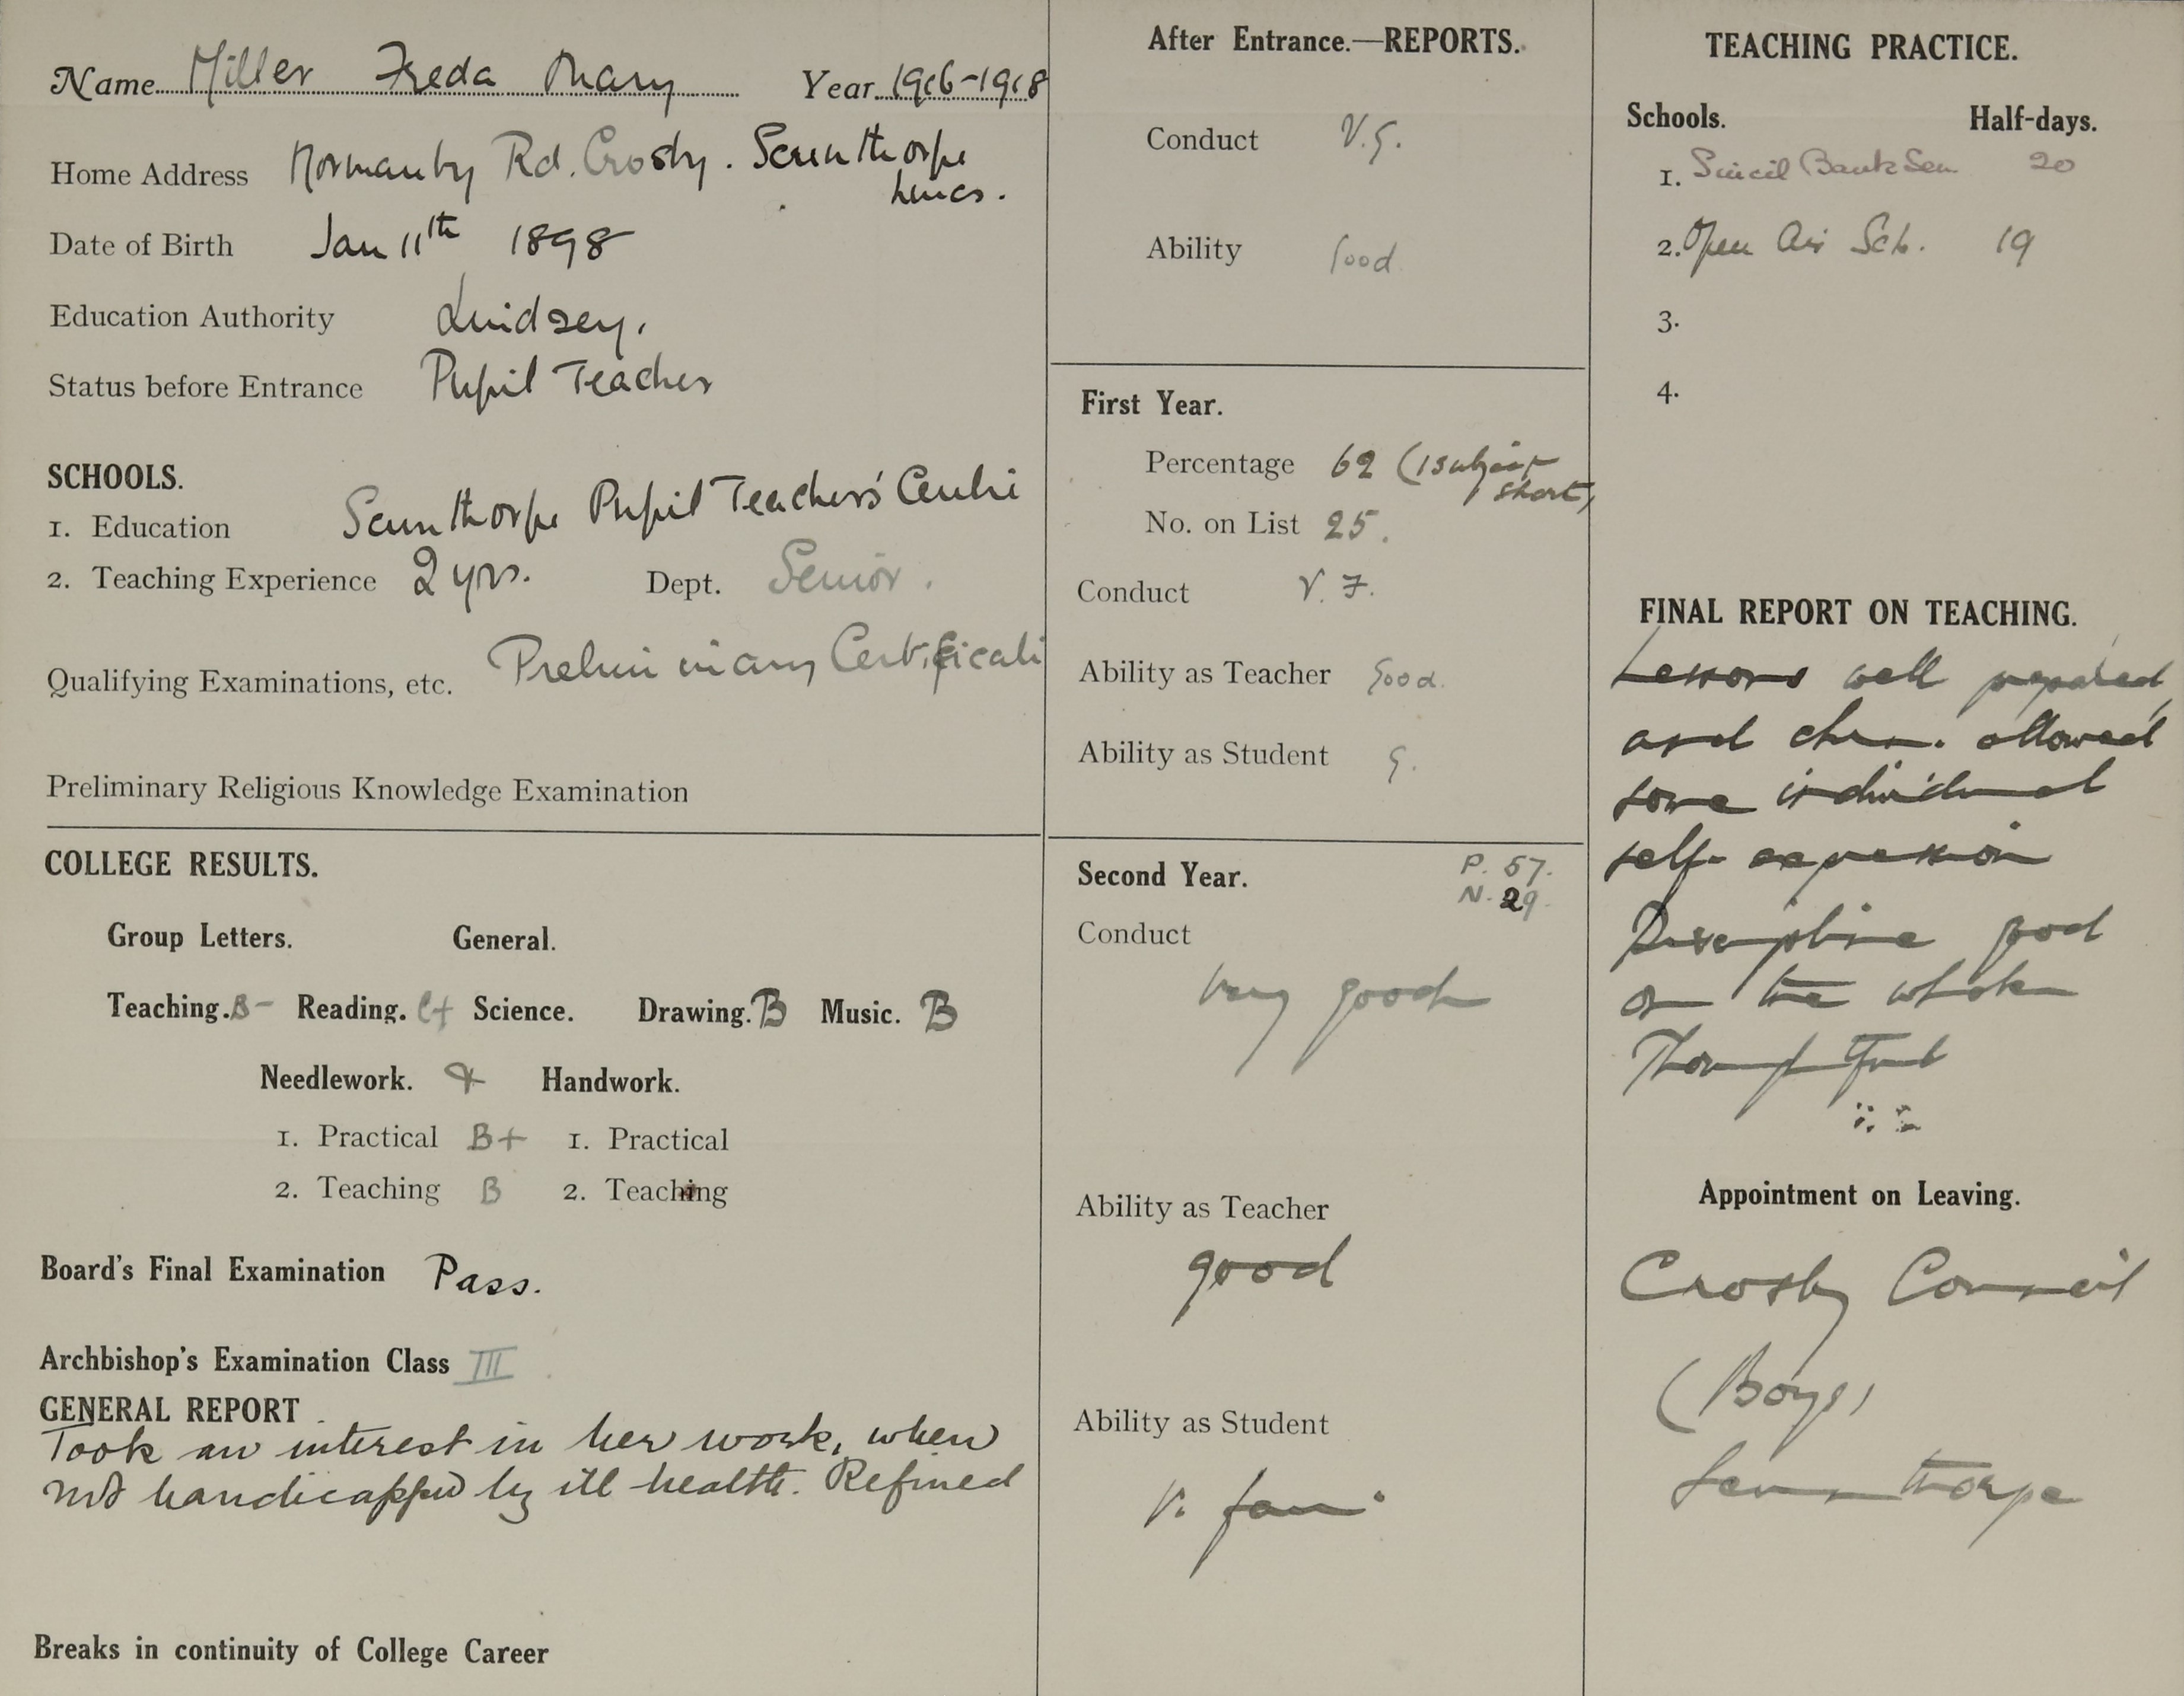 Name Miller Freda Mary Year 1916-1918
Home Address Normanby Rd. Crosby. Scunthorpe
Lincs.
Date of Birth Jan 11th 1898
Education Authority Lindsey.
Status before Entrance Pupil Teacher
SCHOOLS.
1. Education Scunthorpe Pupil Teachers' Centre
2. Teaching Experience 2 yrs. Dept. Senior.
Qualifying Examinations, etc. Preliminary Certificate
Preliminary Religious Knowledge Examination
COLLEGE RESULTS.
Group Letters. General.
Teaching. B- Reading. C+ Science. Drawing. B Music. B
Needlework. Handwork.
1. Practical B+ 1. Practical
2. Teaching B 2. Teaching
Board's Final Examination Pass.
Archbishop's Examination Class III
GENERAL REPORT
Took an interest in her work, when
not handicapped by ill health. Refined
Breaks in continuity of College Career
After Entrance.—REPORTS.
Conduct V.G.
Ability Good
First Year.
Percentage 62 (1 subject
short)
No. on List 25.
Conduct V. F.
Ability as Teacher Good.
Ability as Student G.
Second Year. P. 57.
N. 29.
Conduct
Very good
Ability as Teacher
good
Ability as Student
V. fair
TEACHING PRACTICE.
Schools. Half-days.
1. Sincil Bank Sen. 20
2. Open Air Sch. 19
3.
4.
FINAL REPORT ON TEACHING.
Lessons well prepared,
and chn. allowed
some individual
self-expression
Discipline good
on the whole
Thoughtful
Appointment on Leaving.
Crosby Council
(Boys)
Scunthorpe